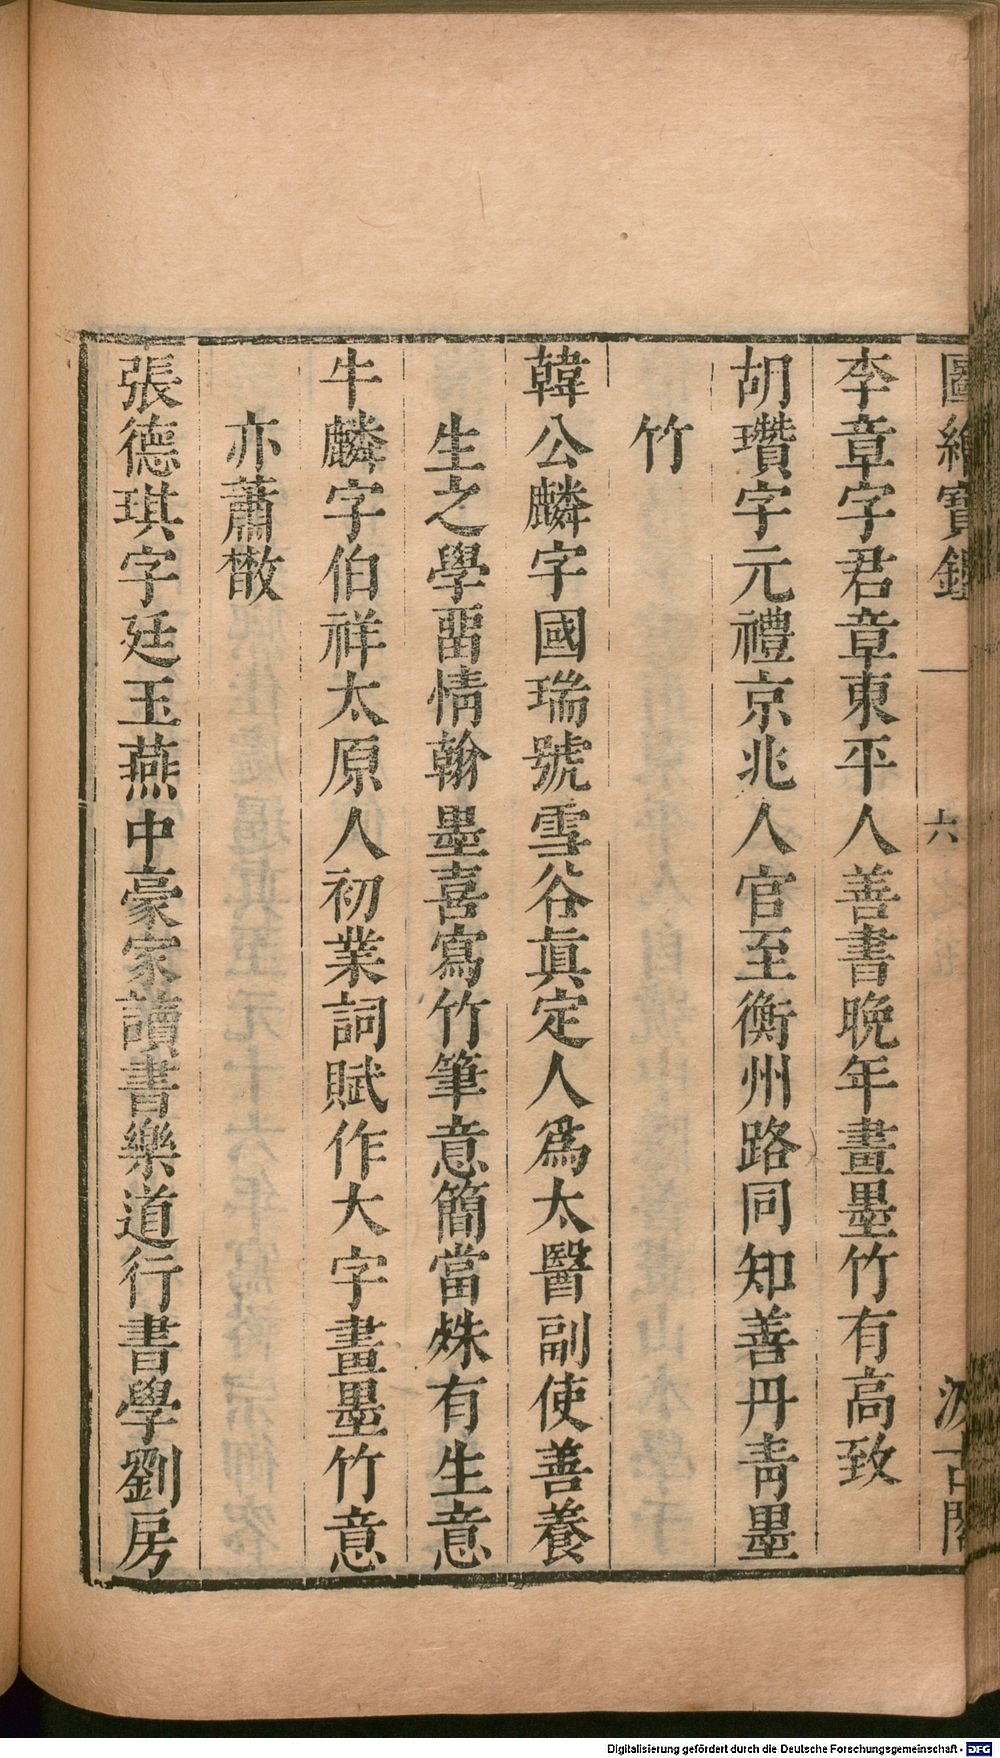 圖繪寶鑑 六 汲古閣
李章字君章東平人善書晚年畫墨竹有高致
胡瓚字元禮京兆人官至衡州路同知善丹靑墨
竹
韓公麟字國瑞號雪谷眞定人爲太醫副使善養
生之學畱情翰墨喜寫竹筆意簡當姝有生意
牛麟字伯祥太原人初業詞賦作大字畫墨竹意
亦蕭散
張德琪字廷玉燕中豪家讀書樂道行書學劉房
Digitalisierung gefördert durch die Deutsche Forschungsgemeinschaft - DFG